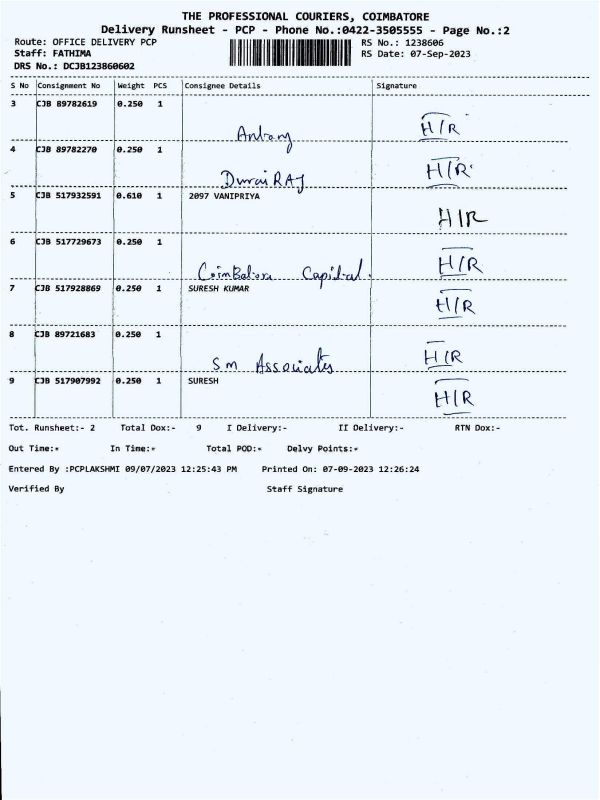 THE PROFESSIONAL COURIERS, COIMBATORE
Delivery Runsheet - PCP - Phone No.:0422-3505555 - Page No.:2
Route: OFFICE DELIVERY PCP RS No.: 1238606
Staff: FATHIMA RS Date: 07-Sep-2023
DRS No.: DCJB123860602
S No Consignment No Weight PCS Consignee Details Signature
3 CJB 89782619 0.250 1
Antony H/R
4 CJB 89782270 0.250 1
Durai RAJ H/R
5 CJB 517932591 0.610 1 2097 VANIPRIYA
H/R
6 CJB 517729673 0.250 1
Coimbatore Capital. H/R
7 CJB 517928869 0.250 1 SURESH KUMAR
H/R
8 CJB 89721683 0.250 1
Sm Associates H/R
9 CJB 517907992 0.250 1 SURESH
H/R
Tot. Runsheet:- 2 Total Dox:- 9 I Delivery:- II Delivery:- RTN Dox:-
Out Time:* In Time:* Total POD:* Delvy Points:*
Entered By :PCPLAKSHMI 09/07/2023 12:25:43 PM Printed On: 07-09-2023 12:26:24
Verified By Staff Signature